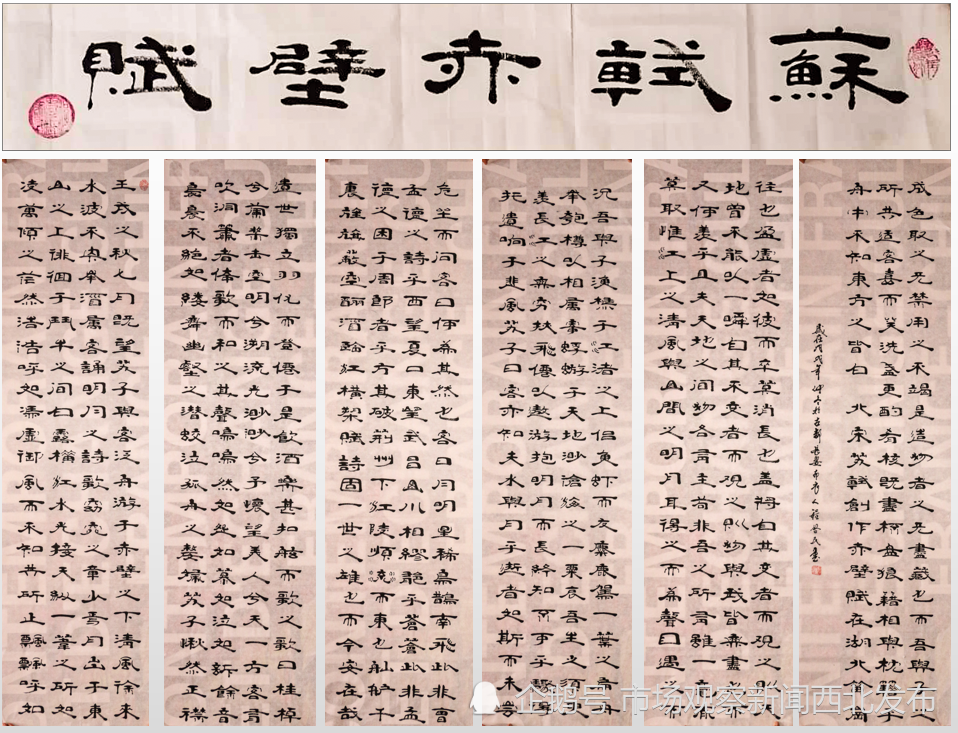 蘇軾赤壁賦
壬戌之秋七月既望苏子與客泛舟游于赤壁之下清風徐来
水波不興举酒屬客誦明月之詩歌窈窕之章少焉月出于東
山之上徘徊于斗牛之间白露横江水光接天纵一葦之所如
凌萬頃之茫然浩浩呼如馮虚御風而不知其所止飄飄呼如
遺世獨立羽化而登僊于是飲酒樂甚扣舷而歌之歌曰桂棹
兮蘭槳击空明兮溯流光渺渺兮于懷望美人兮天一方客有
吹洞簫者倚歌而和之其聲嗚嗚然如怨如慕如泣如訴餘音
嫋嫋不絕如縷舞幽壑之潜蛟泣孤舟之嫠婦苏子愀然正襟
危坐而问客曰何為其然也客曰月明星稀烏鵲南飛此非曹
孟德之詩乎西望夏口東望武昌山川相繆鬱乎蒼蒼此非孟
德之困于周郎者乎方其破荊州下江陵順流而東也舳艫千
里旌旗蔽空釃酒臨江横槊賦詩固一世之雄也而今安在哉
況吾與子渔樵于江渚之上侣鱼虾而友麋鹿駕一葉之扁舟
举匏樽以相属寄蜉蝣于天地渺滄海之一粟哀吾生之须臾
羡長江之無穷挟飛僊以遨游抱明月而長终知不可乎驟得
托遺响于悲風苏子曰客亦知夫水與月乎逝者如斯而未嘗
往也盈虚者如彼而卒莫消長也盖將自其变者而观之则天
地曾不能以一瞬自其不变者而观之则物與我皆無盡也而
又何羡乎且夫天地之间物各有主苟非吾之所有雖一毫而
莫取惟江上之清風與山間之明月耳得之而為聲目遇之而
成色取之无禁用之不竭是造物者之无盡藏也而吾與子之
所共适客喜而笑洗盏更酌肴核既盡杯盘狼籍相與枕藉乎
舟中不知東方之既白 北宋苏軾創作赤壁賦在湖北黄冈
歲在戊戌年
企鹅号 市场观察新闻西北发布